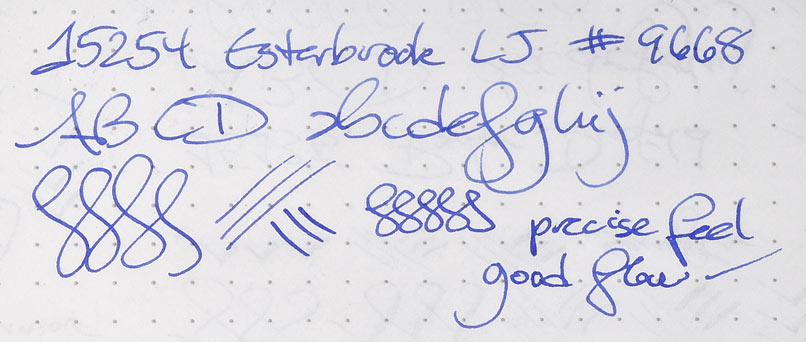 15254 Esterbrook LJ # 9668
ABCD abcdefghij
precise feel
good flow